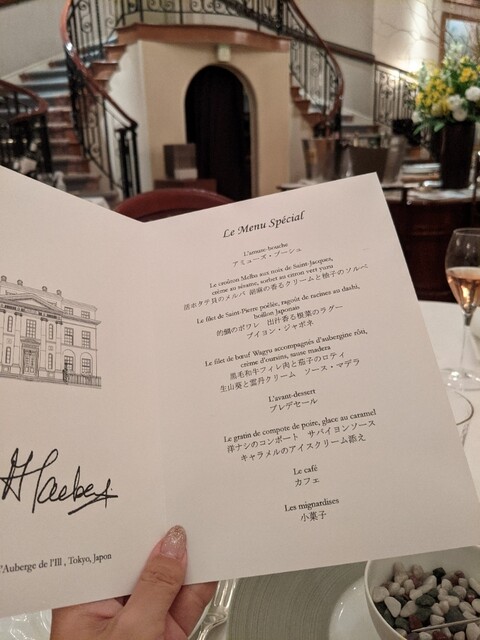 Le Menu Spécial
L'amuse-bouche
アミューズ・ブーシュ
Le croûton Melba aux noix de Saint-Jacques,
crème au sésame, sorbet au citron vert yuzu
活ホタテ貝のメルバ 胡麻の香るクリームと柚子のソルベ
Le filet de Saint-Pierre poêlée, ragoût de racines au dashi,
boillon Japonais
的鯛のポワレ 出汁香る根菜のラグー
ブイヨン・ジャポネ
Le filet de bœuf Wagyu accompagnés d'aubergine rôti,
crème d'oursins, sauce madera
黒毛和牛フィレ肉と茄子のロティ
生山葵と雲丹クリーム ソース・マデラ
L'avant-dessert
プレデセール
Le gratin de compote de poire, glace au caramel
洋ナシのコンポート サバイヨンソース
キャラメルのアイスクリーム添え
Le café
カフェ
Les mignardises
小菓子
'Auberge de l'Ill , Tokyo, Japon